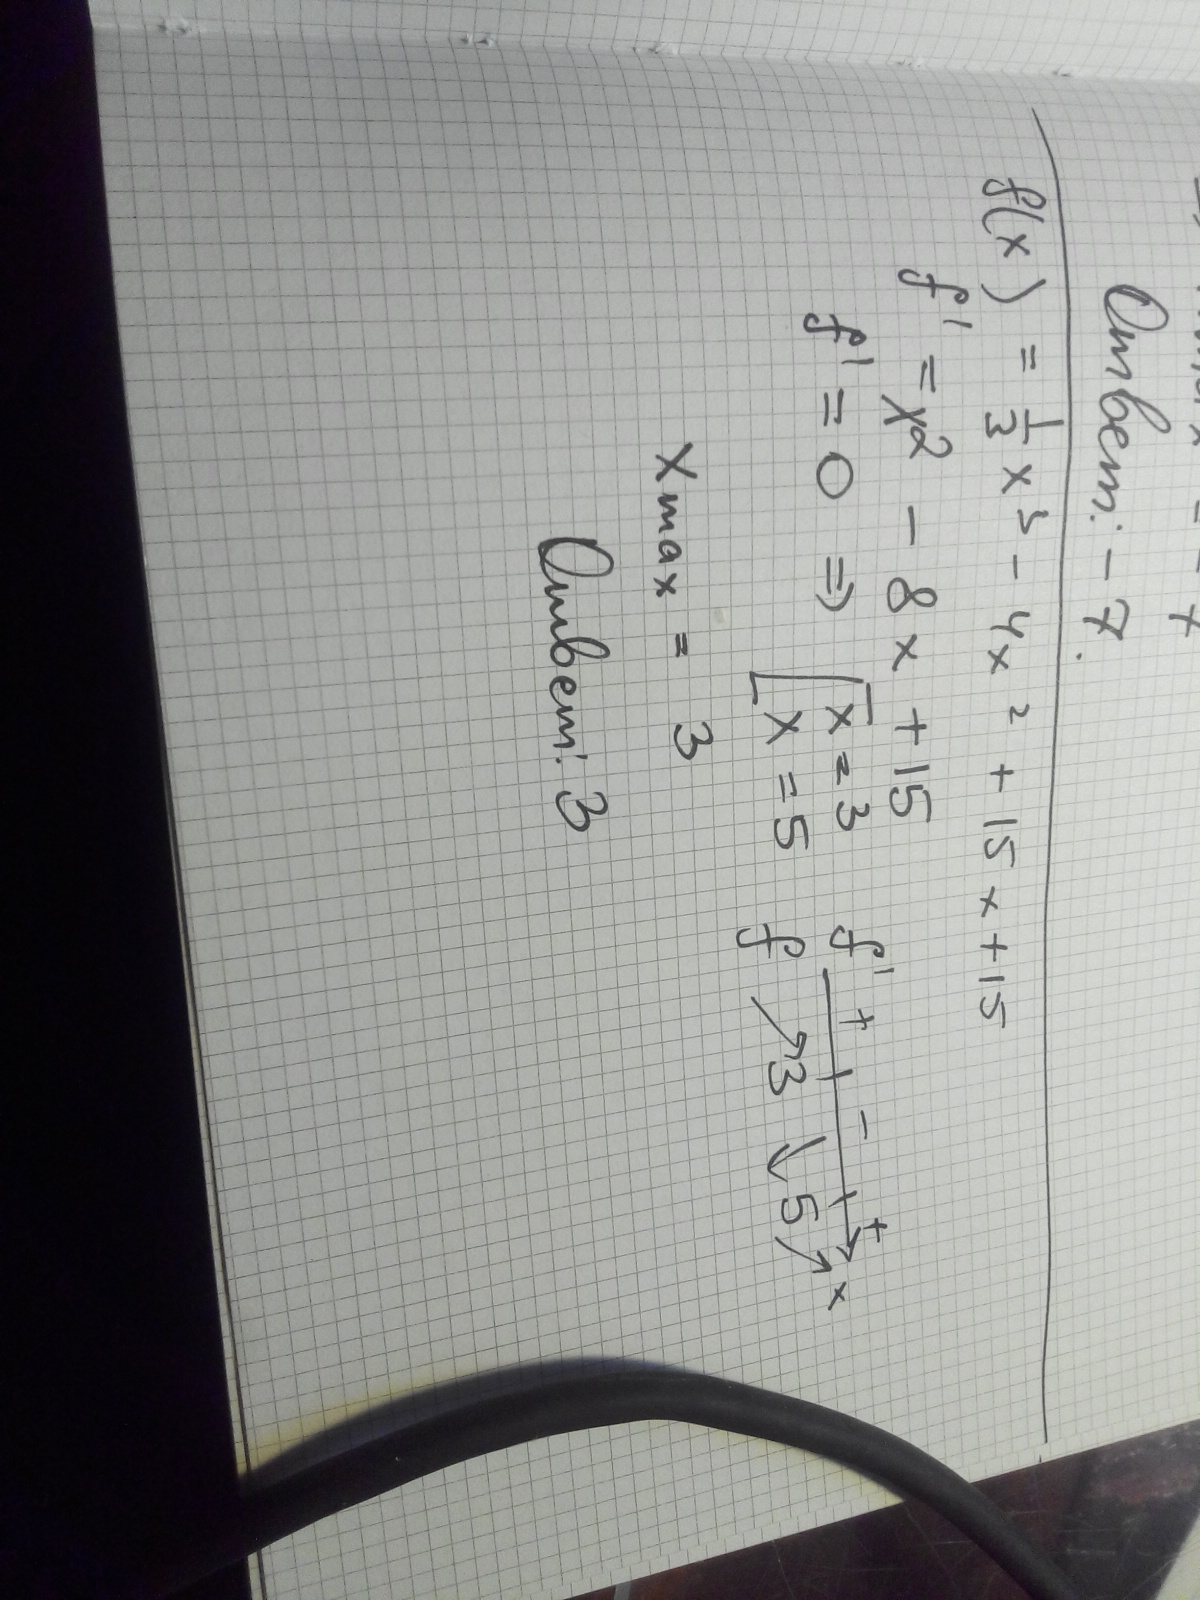 = - 7
Ответ: -7.
f(x) = 1/3 x³ - 4x² + 15x + 15
f' = x² - 8x + 15
f' = 0 ⇒ [ x = 3
x = 5
f' + - + x
f ↗ 3 ↘ 5 ↗
x max = 3
Ответ: 3